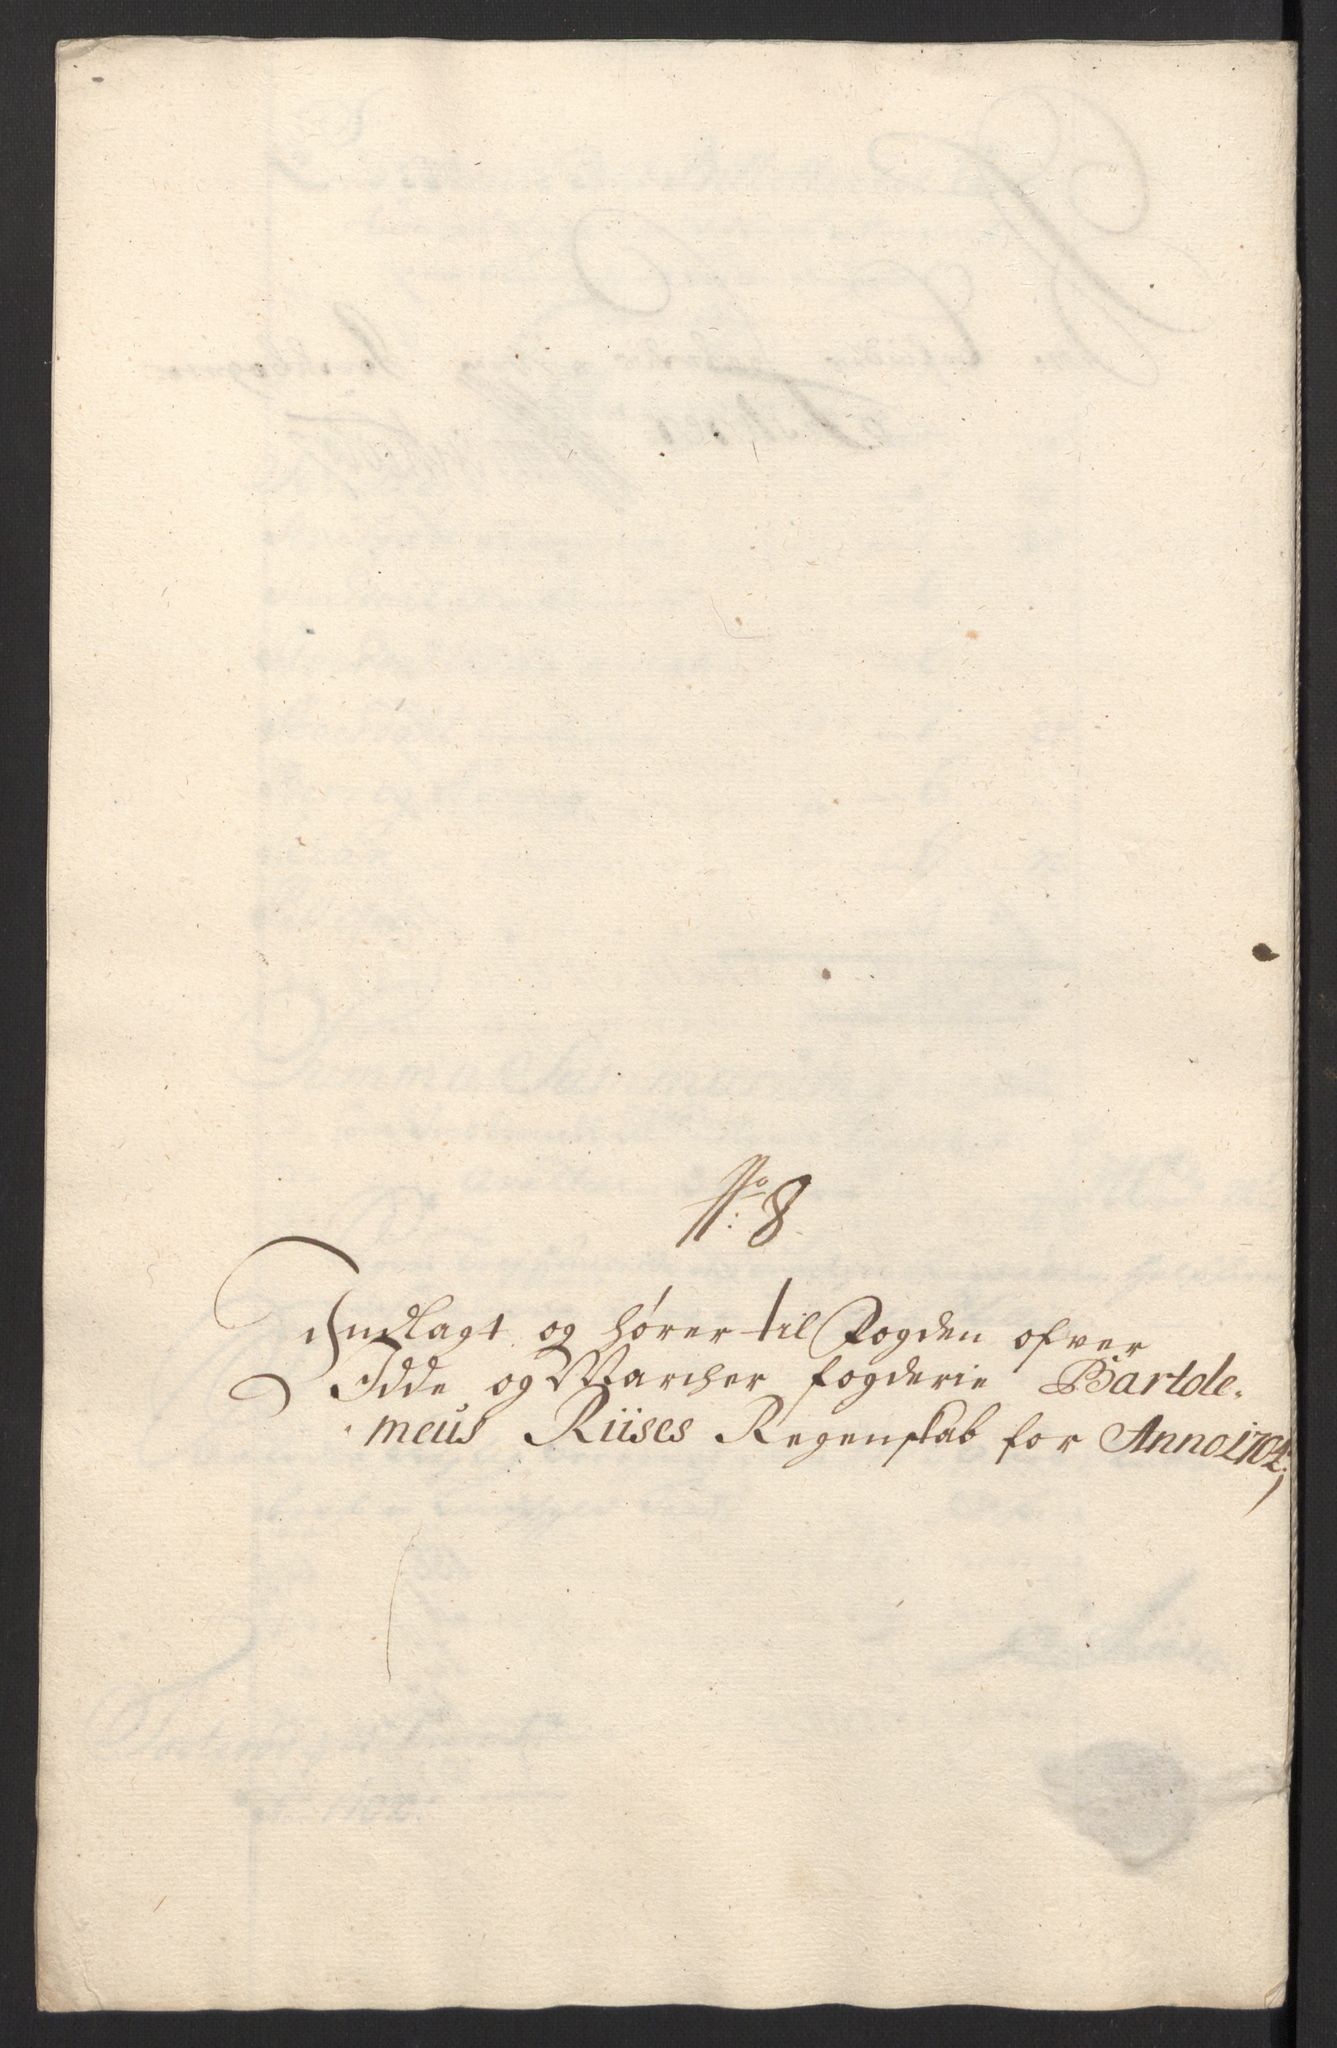 No: 8
Indlagt og hører til Fogden ofver
Idde og Marcher fogderie Bartole-
meus Riises Regenskab for Anno 1704,